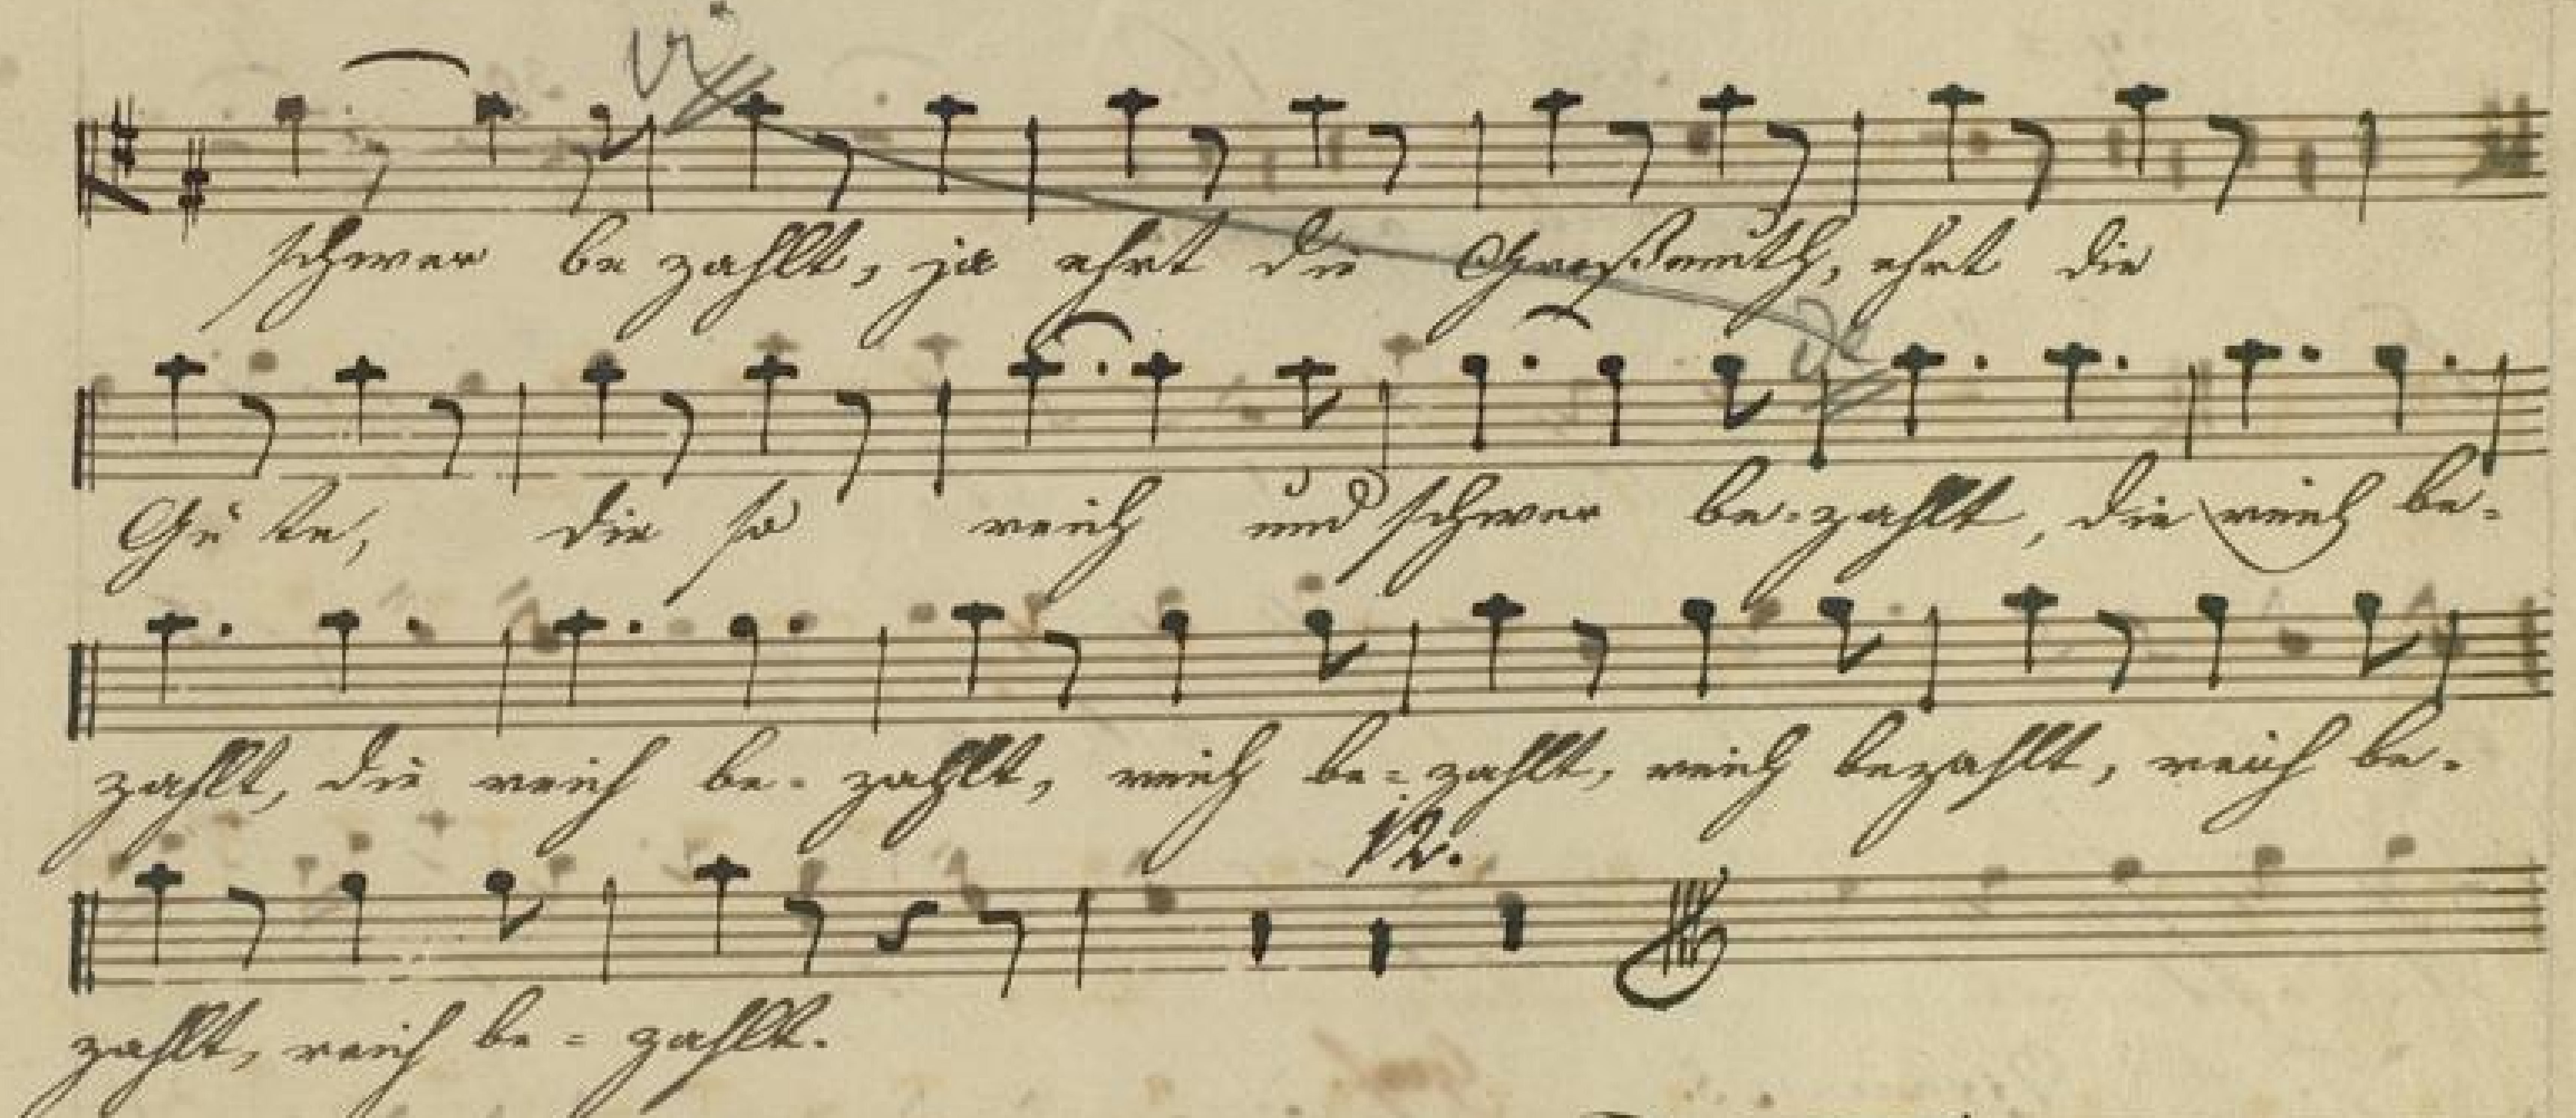 Vi-
schwer be zahlt, ja ehrt die Großmuth, ehrt die
de
Gü te, die so reich und schwer be-zahlt, die reich be-
zahlt, die reich be- zahlt, reich be- zahlt, reich bezahlt, reich be-
12.
zahlt, reich be- zahlt.